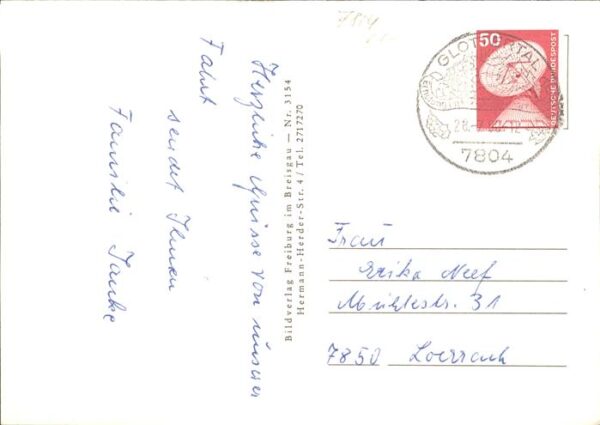 Herzliche Grüsse von unserer
Fahrt
sendet Ihnen
Familie Janke
Bildverlag Freiburg im Breisgau — Nr. 3154
Hermann-Herder-Str. 4 / Tel. 2717270
50
DEUTSCHE BUNDESPOST
GLOTTERTAL
7804
Frau
Erika Neef
Mühlestr. 31
7850 Loerrach